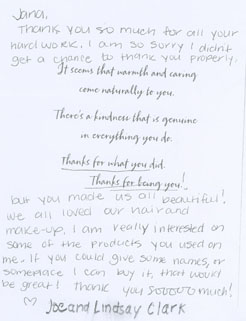 Jana,
Thank you so much for all your
hard work. I am so sorry I didn't
get a chance to thank you properly.
It seems that warmth and caring
come naturally to you.
There's a kindness that is genuine
in everything you do.
Thanks for what you did.
Thanks for being you!
but you made us all beautiful!
we all loved our hair and
make-up. I am really interested on
some of the products you used on
me. If you could give some names, or
someplace I can buy it, that would
be great! Thank you sooooo much!
♡ Joe and Lindsay Clark